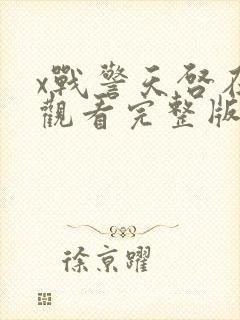 x戰警天啓在
觀看完整版
徐京躍